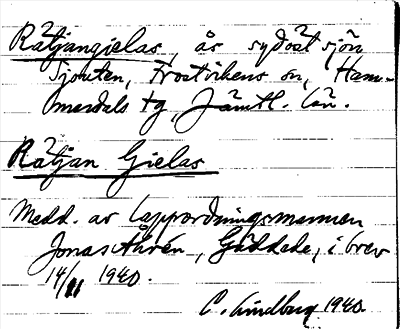 Rätjangielas, ås sydost sjön
Sjouten, Frostvikens sn, Ham-
merdals tg, Jämtl. län.
Rätjan Gielas
Medd. av lappordningsmannen
Jonas Åhrén, Gäddede, i brev
14/11 1940.
C. Lindberg 1940.